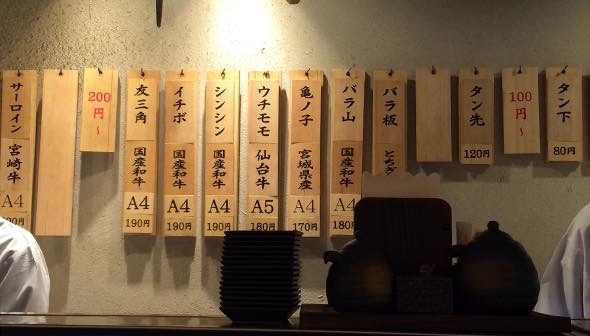 タン下
80円
100円～
タン先
120円
バラ板
とちぎ
バラ山
国産和牛
A4
180
亀ノ子
宮城県産
A4
170円
ウチモモ
仙台牛
A5
180円
シンシン
国産和牛
A4
190円
イチボ
国産和牛
A4
190円
友三角
国産和牛
A4
190円
200円～
サーロイン
宮崎牛
A4